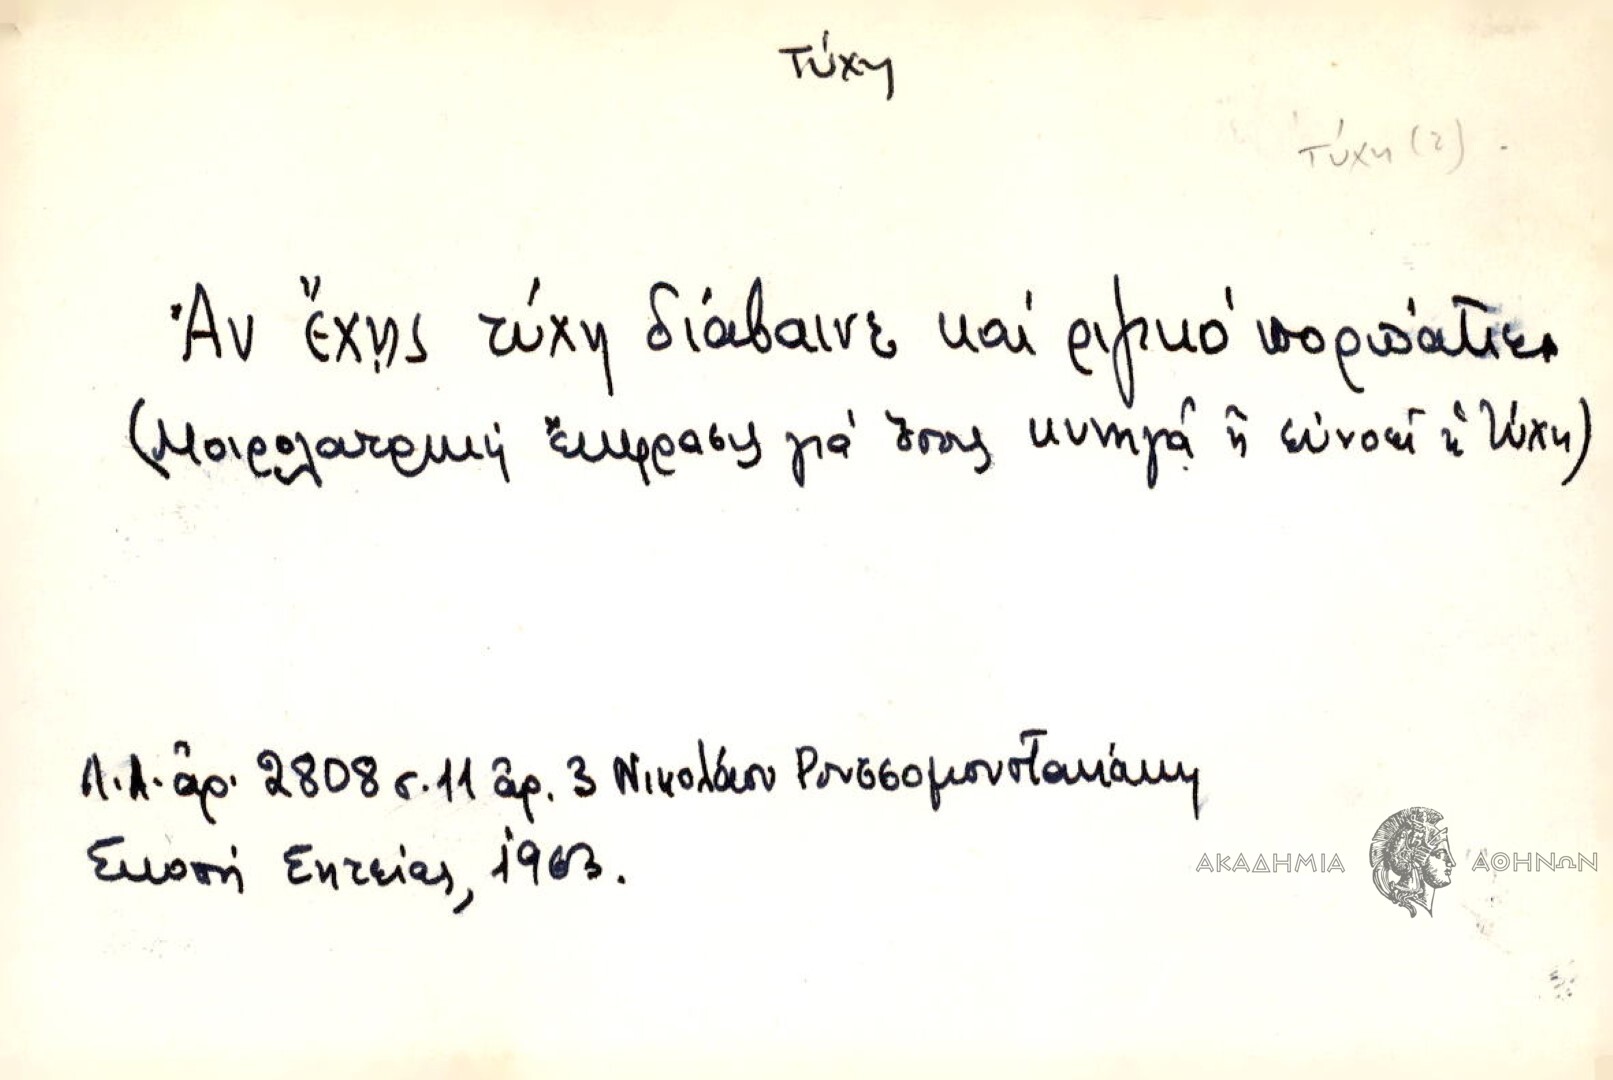 Τύχη
Τύχη (2).
Ἂν ἔχῃς τύχη διάβαινε καί ριζικό πορπάτιε.
(Μοιρολατρική ἔκφρασις γιά ὅσους κυνηγᾷ ἢ εὐνοεῖ ἡ Τύχη)
Λ.Α. ἀρ. 2808 σ. 11 ἀρ. 3 Νικολάου Ρουσσομουστακάκη
Σκοπή Σητείας, 1963.
ΑΚΑΔΗΜΙΑ ΑΘΗΝΩΝ